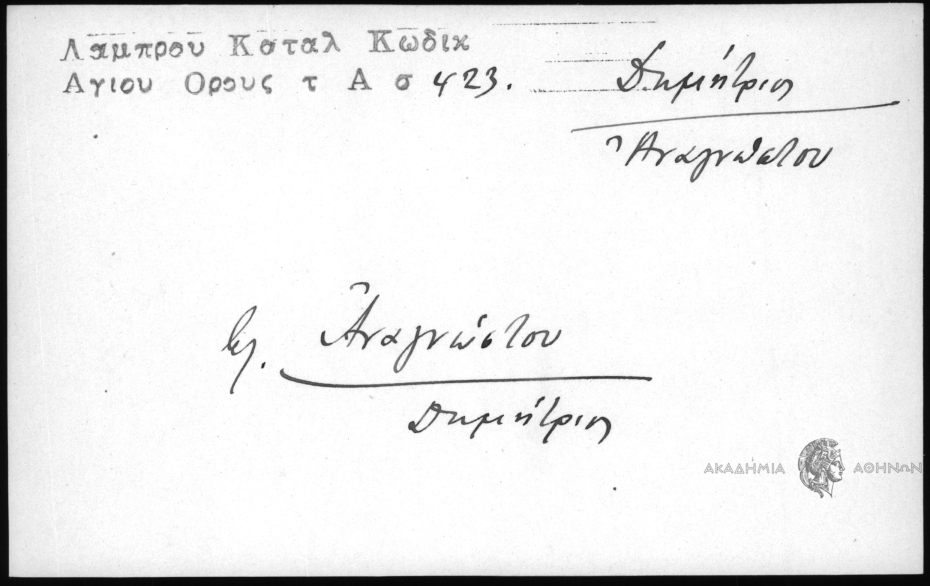 Λαμπρου Καταλ Κωδικ
Αγιου Ορους τ Α σ 423.
Δημήτριος
Ἀναγνώστου
βλ. Ἀναγνώστου
Δημήτριος
ΑΚΑΔΗΜΙΑ ΑΘΗΝΩΝ